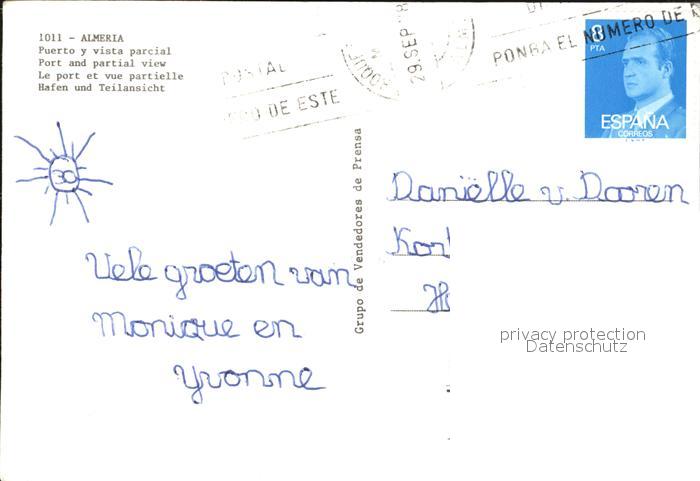 1011 - ALMERIA
Puerto y vista parcial
Port and partial view
Le port et vue partielle
Hafen und Teilansicht
POSTAL
DE ESTE
29 SEP
PONGA EL NUMERO DE
8
PTA
ESPAÑA
CORREOS
30
Vele groeten van
Monique en
Yvonne
Grupo de Vendedores de Prensa
Daniëlle v. Dooren
privacy protection
Datenschutz